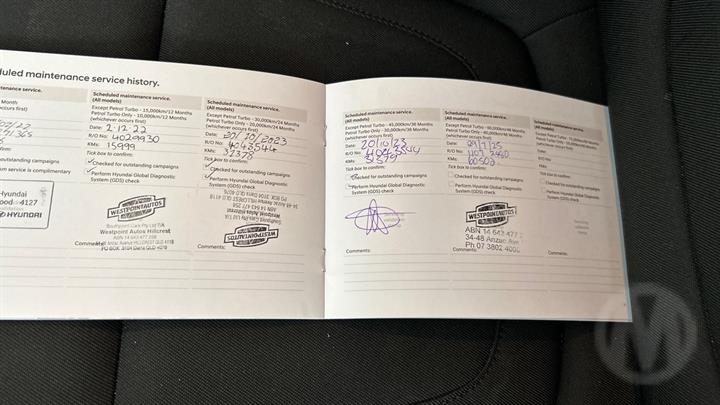 uled maintenance service history.
enance service.
Month
occurs first)
outstanding campaigns
service is complimentary
Hyundai
ood 4127
HYUNDAI
Scheduled maintenance service.
(All models)
Except Petrol Turbo - 15,000km/12 Months
Petrol Turbo Only - 10,000km/12 Months
(whichever occurs first)
Date: 2.12.22
R/O No: 4029930
KMs: 15999
Tick box to confirm:
Checked for outstanding campaigns
Perform Hyundai Global Diagnostic
System (GDS) check
WESTPOINTAUTOS
Westpoint Autos Hillcrest
Comments:
Scheduled maintenance service.
(All models)
Except Petrol Turbo - 30,000km/24 Months
Petrol Turbo Only - 20,000km/24 Months
(whichever occurs first)
Date: 20/10/2023
R/O No: 4043544
KMs: 31378
Tick box to confirm:
Checked for outstanding campaigns
Perform Hyundai Global Diagnostic
System (GDS) check
Westpoint Autos Hillcrest
WESTPOINTAUTOS
Comments:
Scheduled maintenance service.
(All models)
Except Petrol Turbo - 45,000km/36 Months
Petrol Turbo Only - 30,000km/36 Months
(whichever occurs first)
Date: 20/10/23
R/O No:
KMs:
Tick box to confirm:
Checked for outstanding campaigns
Perform Hyundai Global Diagnostic
System (GDS) check
Comments:
Scheduled maintenance service.
(All models)
Except Petrol Turbo - 60,000km/48 Months
Petrol Turbo Only - 40,000km/48 Months
(whichever occurs first)
Date:
R/O No:
KMs: 60502
Tick box to confirm:
Checked for outstanding campaigns
Perform Hyundai Global Diagnostic
System (GDS) check
WESTPOINTAUTOS
ABN 14 643 477 2
34-48 Anzac Ave
Ph 07 3802 4000
Comments:
Scheduled maintenance service.
(All models)
(whichever occurs first)
Date:
R/O No:
KMs:
Tick box to confirm:
Checked for outstanding campaigns
Perform Hyundai Global Diagnostic
System (GDS) check
Comments: